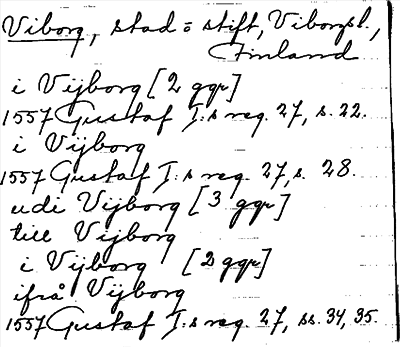 Viborg, stad = stift, Viborgsl.,
Finland
i Vijborg [2 ggr]
1557 Gustaf I:s reg. 27, s. 22.
i Vijborg
1557 Gustaf I:s reg. 27, s. 28.
udi Vijborg [3 ggr]
till Vijborg
i Vijborg [2 ggr]
ifrå Vijborg
1557 Gustaf I:s reg. 27, ss. 34, 35.